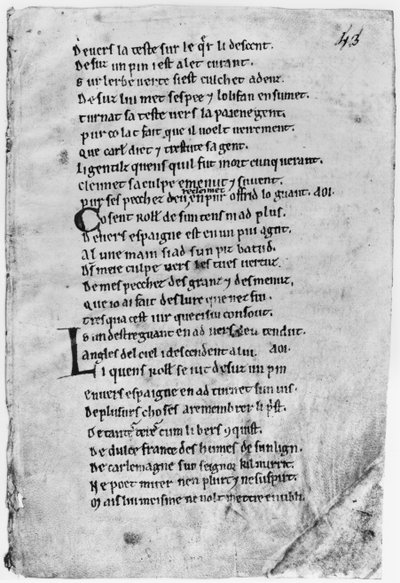 43
Deuers la teste sur le q̄r li descent.
Desuz un pin i est alet curant.
Sur lerbe uerte si est culchet adenz.
Desuz lui met sespee ⁊ lolifan ensumet.
Turnat sa teste uers la paiene gent.
Pur co lat fait que il uoelt ueirement.
Que carl̄ diet ⁊ trestute sa gent.
Li gentilz quens quil fut mort cunquerant.
Cleimet sa culpe e menut ⁊ suuent.
recleimet
Pur ses pecchez deu en puroffrid lo guant. AOI.
Co sent roll̄ de sun tens ni ad plus.
Deuers espaigne est en un pui agut.
Al une main si ad sun piz batud.
D̄s meie culpe uers les tues uertuz.
De mes pecchez des granz ⁊ des menuz.
Que io ai fait des lure que nez fui.
Tresqua cest iur que ci sui consout.
Sun destre guant en ad uers deu tendut.
Angles del ciel i descendent a lui. AOI.
Li quens Roll̄ se iut desuz un pin
Enuers espaigne en ad turnet sun uis.
De plusurs choses a remembrer li p̄st.
De tantes teres cum li bers ꝯquist.
De dulce france des humes de sun lign.
De carlemagne sun seignor kil nurrit.
Ne poet muer nen plurt ⁊ ne suspirt.
Mais lui meisme ne uolt mettre en ubli.